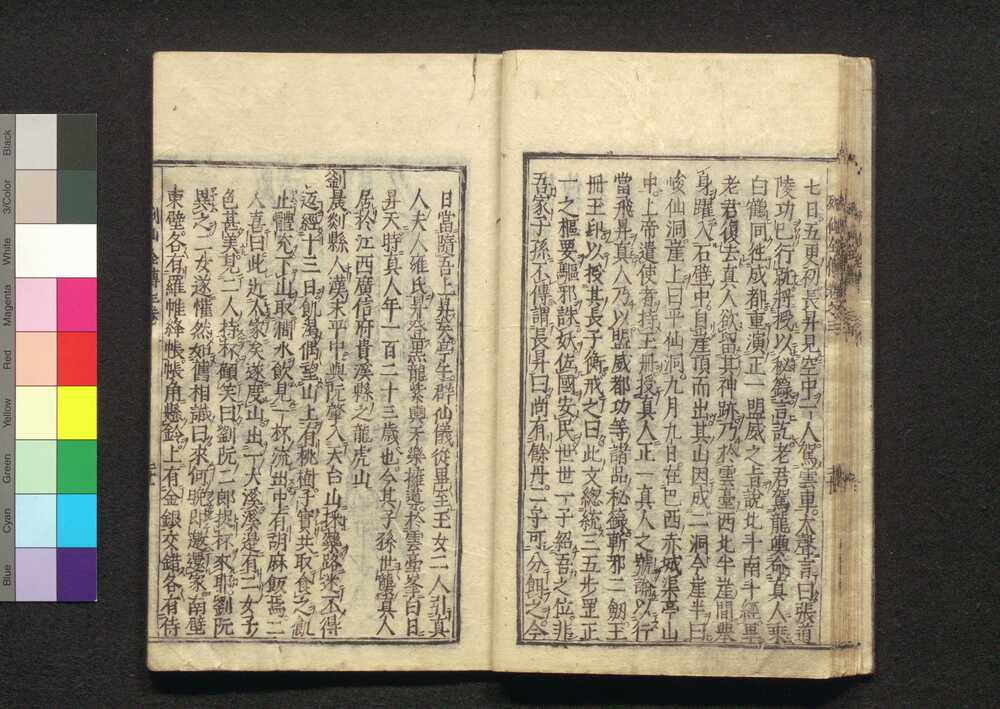 七日五更初長昇見空中一人駕雲車大聲言曰張道
陵功已行就將授以秘籙言訖老君駕龍輿命真人乘
白鶴同徃成都重演正一盟威之旨說北斗南斗經畢
老君復去真人欲留其神跡乃於雲臺西北半崖間舉
身躍入石壁中自崖頂而出其山因成二洞今崖半曰
峻仙洞崖上曰平仙洞九月九日在巴西赤城渠亭山
中上帝遣使者持玉冊授真人正一真人之號諭以行
當飛昇真人乃以盟威都功等諸品秘籙斬邪二劔玉
冊玉印以授其長子衡戒之曰此文總統三五步罡正
一之樞要驅邪誅妖佐國安民世世一子紹吾之位非
吾家子孫不傳謂長昇曰尚有餘丹二子可分餌之今
日當隨吾上昇矣亭午群仙儀從畢至玉女二人引真
人夫人雍氏昇登黑龍紫輿天樂擁導於雲臺峯白日
昇天時真人年一百二十三歲也今其子孫世襲真人
居於江西廣信府貴溪縣之龍虎山
劉晨剡縣人漢末平中與阮肇入天台山採藥路迷不得
返經十三日飢渴偶望山上有桃樹子實共取食之飢
止體充下山取澗水飲見一杯流出中有胡麻飯焉二
人喜曰此近人家矣遂度山出一大溪溪邊有二女子
色甚美見二人持杯顧笑曰劉阮二郎捉杯來耶劉阮
異之二女遂懽然如舊相識曰來何晚即邀還家南壁
東壁各有羅帷絳帳帳角懸鈴上有金銀交錯各有侍
Black
3/Color
White
Magenta
Red
Yellow
Green
Cyan
Blue